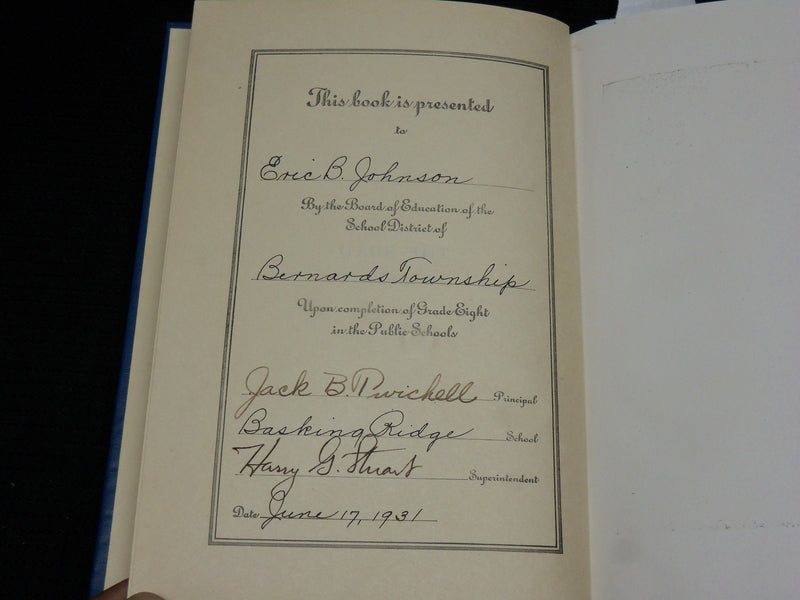 This book is presented
to
Eric B. Johnson
By the Board of Education of the
School District of
Bernards Township
Upon completion of Grade Eight
in the Public Schools
Jack B. Twichell Principal
Basking Ridge School
Harry G. Stuart Superintendent
Date June 17, 1931